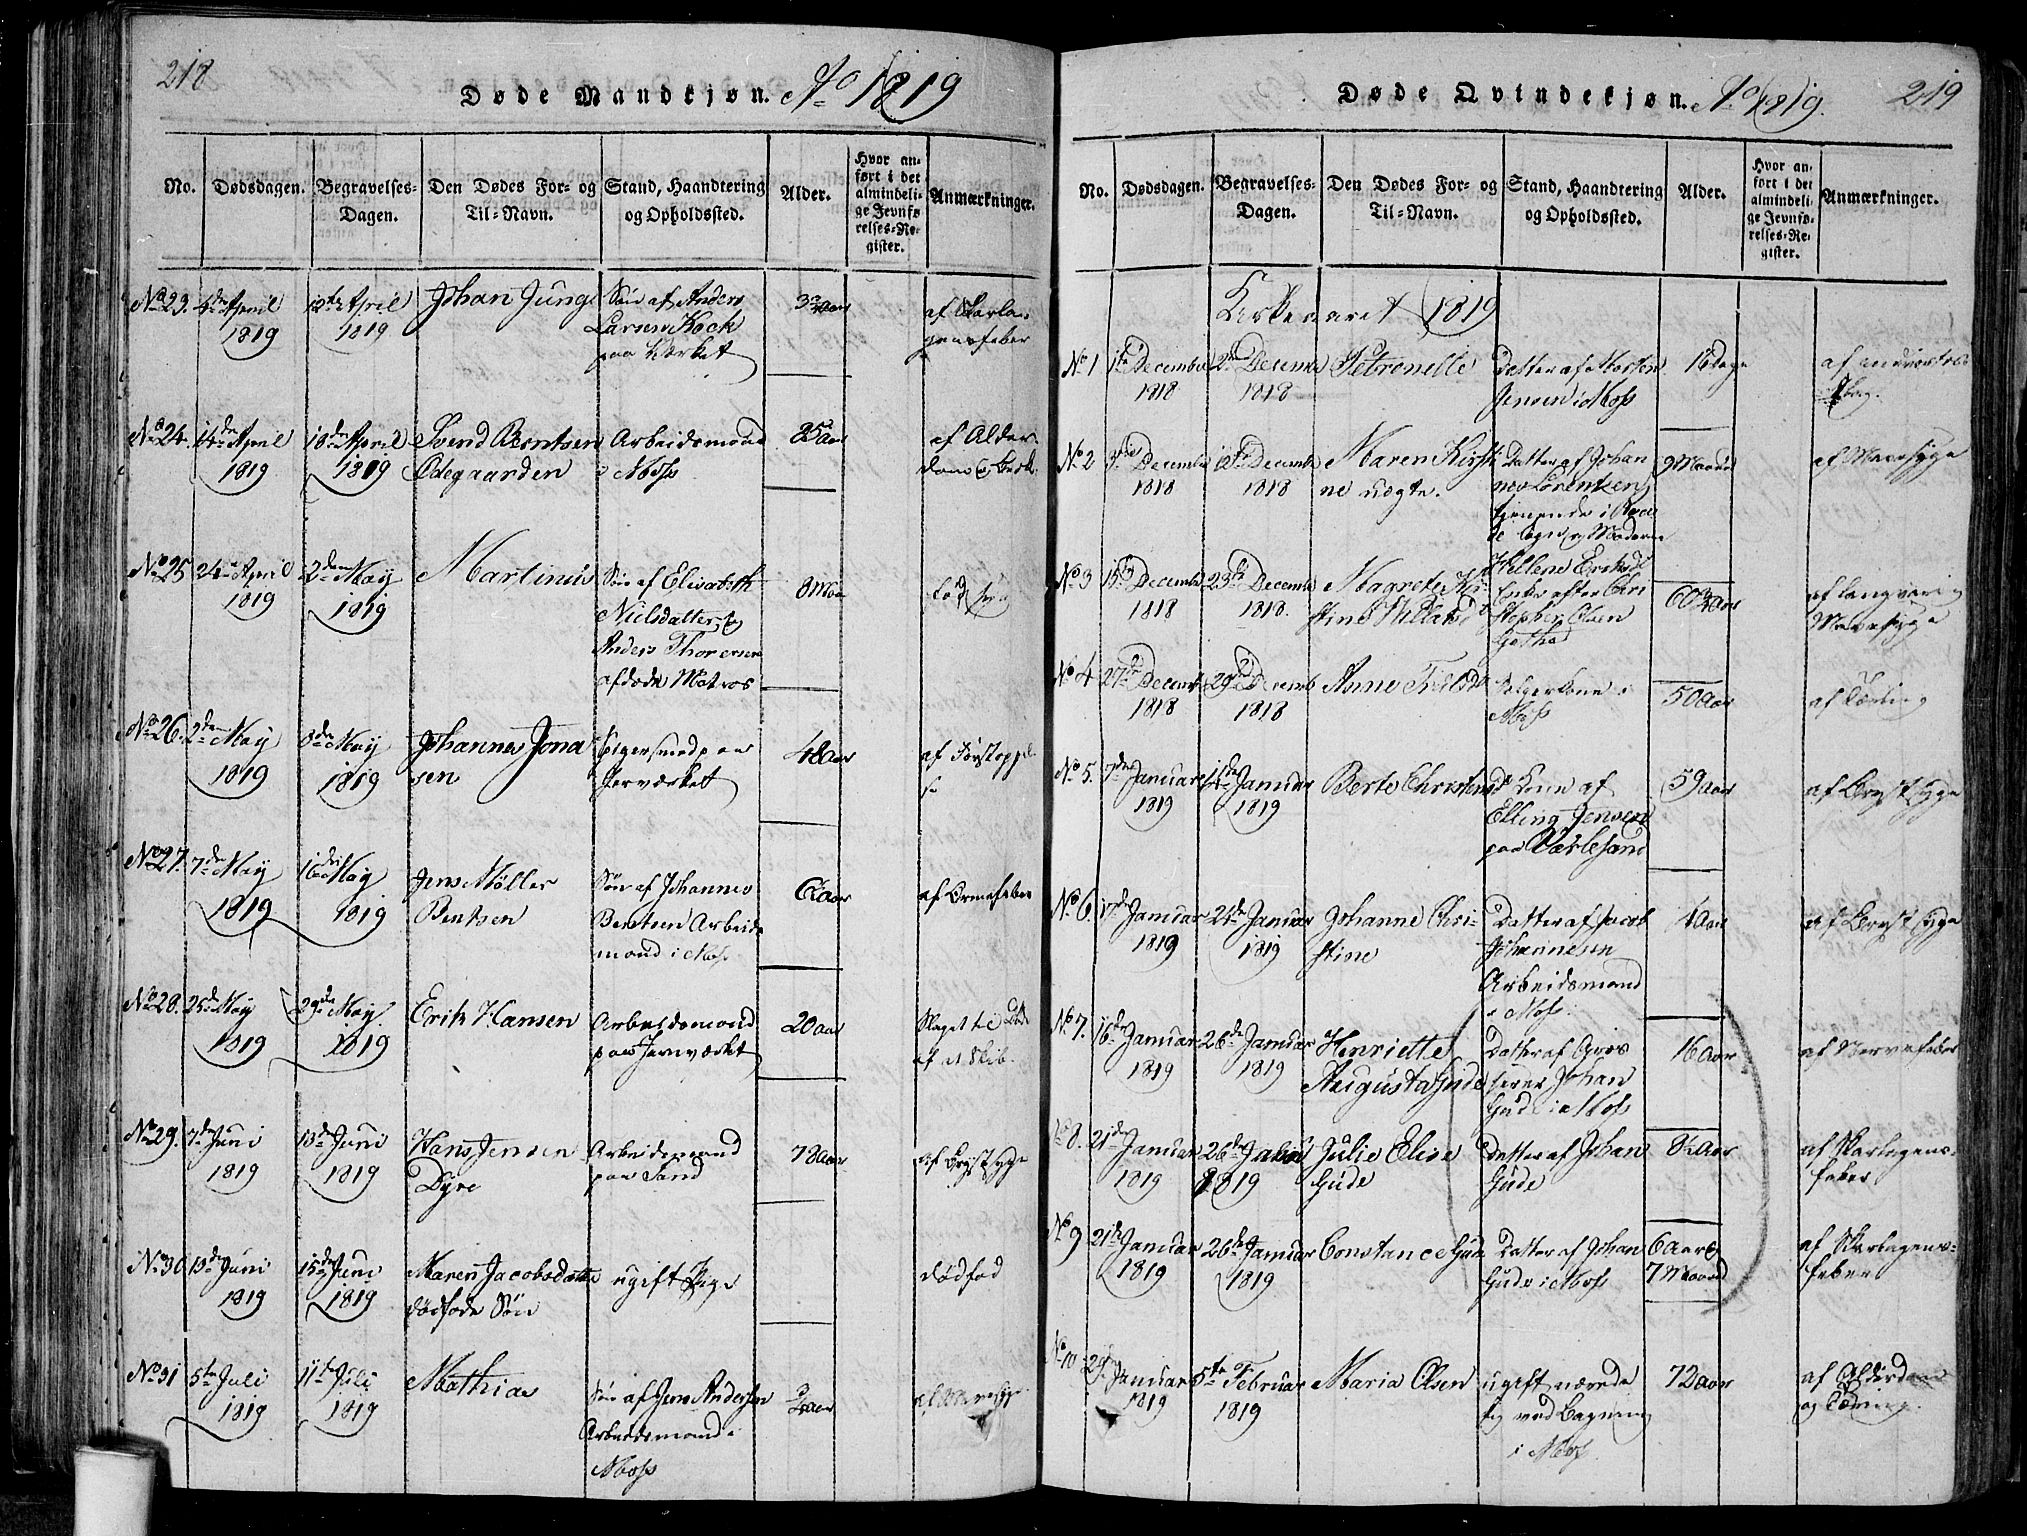 218
Døde Mandkjøn. Ao 1819
No.
Dødsdagen.
Begravelses-
Dagen.
Den Dødes For- og
Til-Navn.
Stand, Haandtering
og Opholdssted.
Alder.
Hvor an-
ført i det
almindeli-
ge Jevnfø-
relses-Re-
gister.
Anmærkninger.
No 23. 4de April
1819
12te April
1819
Johan Jung
Søn af Anders
Larsen Kock
paa Værket
af Skarla-
gensfeber
No 24. 14de April
1819
18de April
1819
Svend Berntsen
Ødegaarden
Arbeidsmand
i Moss
85 Aar
af Alder-
dom
No 25 24de April
1819
2den May
1819
Martinus
Søn af Elisabeth
Nielsdatter og
Anders Thoresen
afdøde Matros
8 Maa
No 26. 2den May
1819
8de May
1819
Johannes Jona
sen
paa
Jernværket
48 Aar
af Forstoppel-
se
No 27. 7de May
1819
16de May
1819
Jens Møller
Bentsen
Søn af Johannes
Berntsen Arbeids
mand i Moss
6 Aar
af Ormefeber
No 28. 25de May
1819
29de May
1819
Erik Hansen
Arbeidsmand
paa Jernværket
20 aar
Slaget til Døde
af et Skib.
No 29. 7de Juni
1819
13de Juni
1819
Hans Jensen
Dyre
Arbeidsmand
paa Sand
78 aar
af Brystsyge
No 30 13de Juni
1819
15de Juni
1819
Maren Jacobsdatter
dødfødte Søn
ugift Pige
dødfød
No 31 5te Juli
1819
11te Juli
1819
Mathias
Søn af Jens Andersen
Arbeidsmand i
Moss
219
Døde Qvindekjøn. Ao 1819.
No.
Dødsdagen.
Begravelses-
Dagen.
Den Dødes For- og
Til-Navn.
Stand, Haandtering
og Opholdssted.
Alder.
Hvor an-
ført i det
almindeli-
ge Jevnfø-
relses-Re-
gister.
Anmærkninger.
Kirkeaaret 1819
No 1 1te December
1818
2den Decembr
1818
Petronelle
Datter af Morten
Jensen i Moss
Slag.
No 2
Decembr
1818
Decembr
1818
Maren Kirsti
ne uægte.
Datter af Johan
nes Lorentzen
tjenende i Ryg
ge Sogn og Moderen
Hellene Ersdr
9 Maaned
af Mavesyge
No 3 15de Decembr
1818
23de Decembr
1818.
Magrete Kri
stine Willads
Enke efter Chri
stopher Olsen
Gotha
af langvarig
Mavesyge
No 4 27de Decembr
1818
29de Decembr
1818
Anne
i
Moss
50 Aar
af Tæring
No 5. 7de Januar
1819
14de Januar
1819
Berte Christens
Kone af
Elling Jensen
paa Værlesand
59 Aar
af Brystsyge
No 6. 17de Januar
1819
24de Januar
1819
Johanne Chri-
stine
Datter af Jacob
Johannesen
Arbeidsmand
i Moss.
af Brystsyge
No 7. 16de Januar
1819
26de Januar
1819
Henriette
Augusta Gude
Datter af
Johan
Gude i Moss
16 Aar
af Nervefeber
No 8. 21de Januar
1819
26de Januar
1819
Julie Elise
Gude
Datter af Johan
Gude
af Skarlagens-
feber
No 9 21de Januar
1819
26de Januar
1819
Constance Gude
Datter af Johan
Gude i Moss
6 Aar og
7 Maaned
af Skarlagens-
feber
No 10 29de Januar
1819
5te Februar
1819
Maria Olsen
ugift nærede
sig ved Bagning
i Moss
72 aar
af Alderdom
og Tæring.